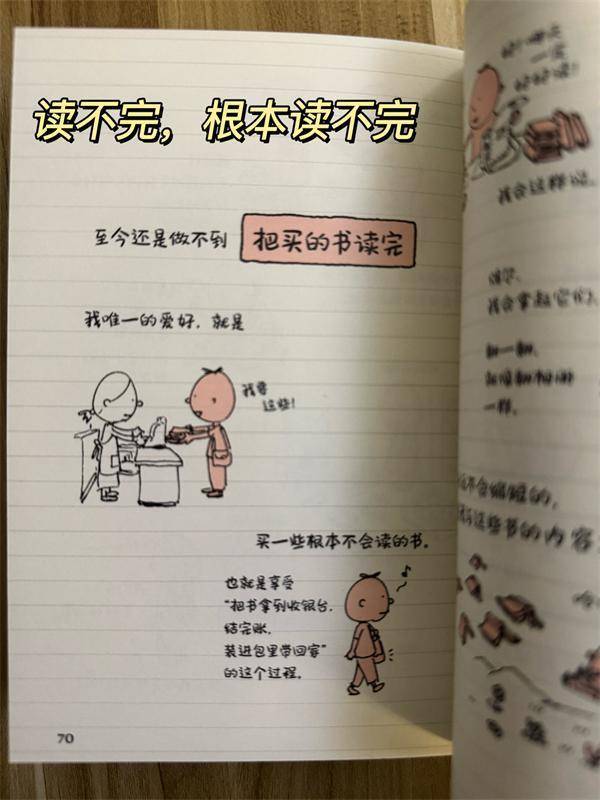 读不完，根本读不完
至今还是做不到 把买的书读完
我唯一的爱好，就是
我要
这些！
买一些根本不会读的书。
也就是享受
“把书拿到收银台，
结完账，
装进包里带回家”
的这个过程。
70
一定
好好读！
我会这样说。
偶尔，
我会拿起它们，
翻一翻，
一样。
这些书的内容